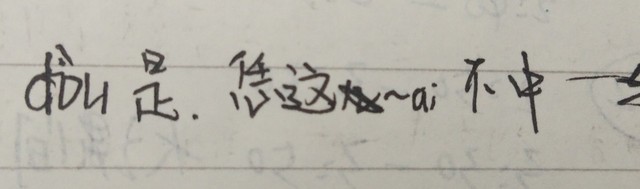 dòu 是. 恁这~ai 不中一